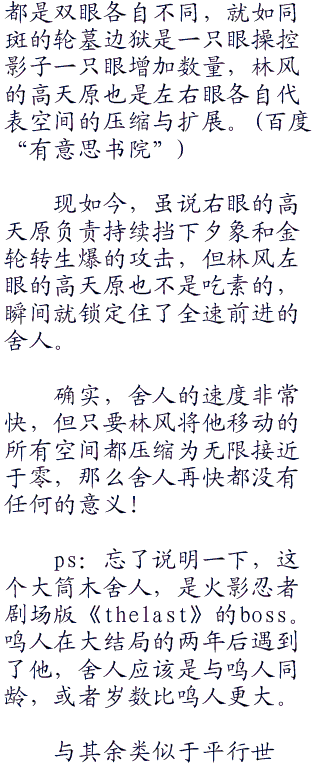 都是双眼各自不同，就如同
斑的轮墓边狱是一只眼操控
影子一只眼增加数量，林风
的高天原也是左右眼各自代
表空间的压缩与扩展。(百度
“有意思书院”)
现如今，虽说右眼的高
天原负责持续挡下夕象和金
轮转生爆的攻击，但林风左
眼的高天原也不是吃素的，
瞬间就锁定住了全速前进的
舍人。
确实，舍人的速度非常
快，但只要林风将他移动的
所有空间都压缩为无限接近
于零，那么舍人再快都没有
任何的意义！
ps：忘了说明一下，这
个大筒木舍人，是火影忍者
剧场版《thelast》的boss。
鸣人在大结局的两年后遇到
了他，舍人应该是与鸣人同
龄，或者岁数比鸣人更大。
与其余类似于平行世